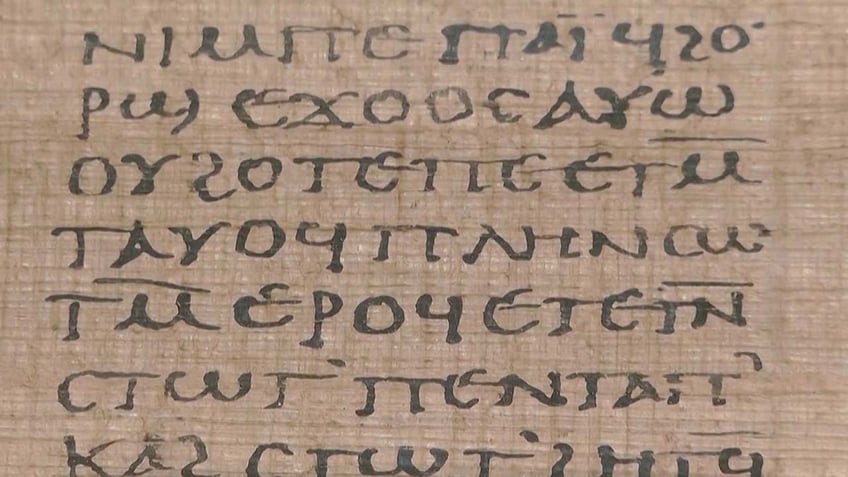 ⲛⲓⲙⲡⲉⲡⲁⲓ̈ϥϩⲟ
ⲣϣⲉϫⲟⲟⲥⲁⲩⲱ
ⲟⲩϩⲟⲧⲉⲡⲉⲉⲧⲙ̅
ⲧⲁⲩⲟϥⲡⲗⲏⲛⲥⲱ
ⲧⲙ̅ⲉⲣⲟϥⲉⲧⲉⲧⲛ̅
ⲥⲧⲱⲧ'ⲡⲉⲛⲧⲁⲡ'
ⲕⲁϩⲥⲧⲱⲧ'ϩⲏⲧϥ̅